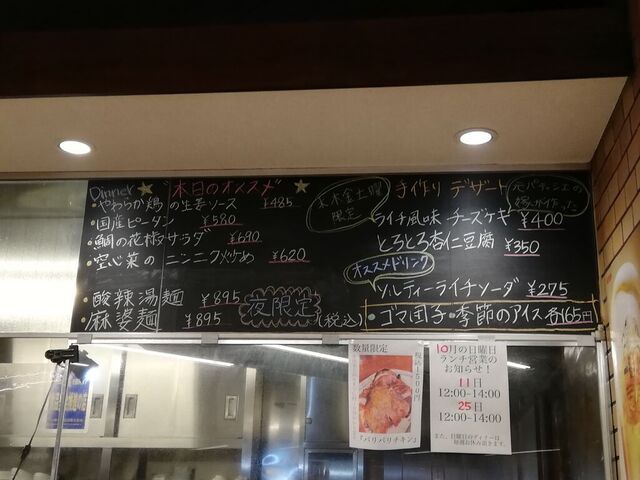 Dinner ★ 本日のオススメ ★
・やわらか鶏の生姜ソース ¥485
・国産ピータン ¥580
・鯛の花椒サラダ ¥690
・空心菜のニンニク炒め ¥620
・酸辣湯麺 ¥895
・麻婆麺 ¥895
夜限定
(税込)
木金土曜
限定
手作りデザート
元パティシエの
ライチ風味チーズケーキ ¥400
とろとろ杏仁豆腐 ¥350
オススメドリンク
ソルティーライチソーダ ¥275
・ゴマ団子・季節のアイス 各165円
数量限定
『パリパリチキン』
10月の日曜日
ランチ営業の
お知らせ!
11日
12:00~14:00
25日
12:00~14:00
また、日曜日のディナーは
毎週お休み頂きます。